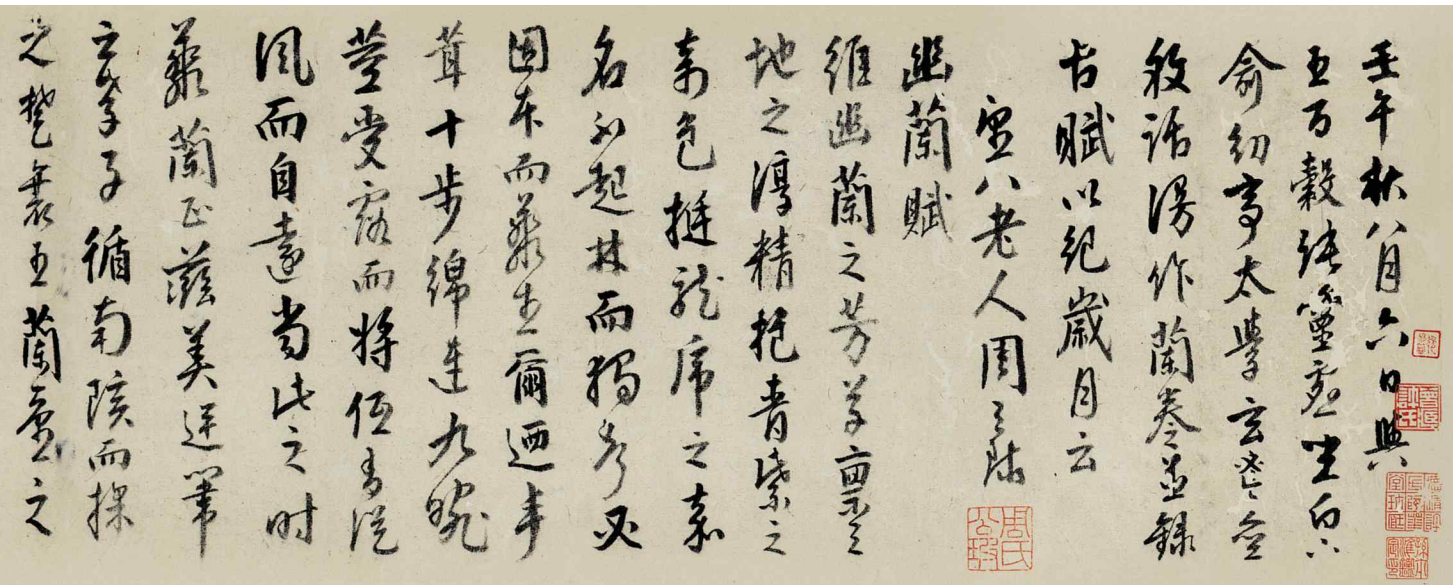 壬午秋八月六日與
王百穀張靈虛坐白下
俞幼太學玄
敘話漫作蘭卷並錄
古賦以紀歲月云
望八老人周天球
周氏公瑕
幽蘭賦
維幽蘭之芳草稟天
地之淳精抱青紫之
奇色挺龍虎之嘉
名不起林而獨秀必
固本而叢生爾迺丰
茸十步綿連九畹
莖受露而將低香從
風而自遠當此之時
叢蘭正滋美庭闈
之孝子循南陔而採
之楚襄王蘭臺之